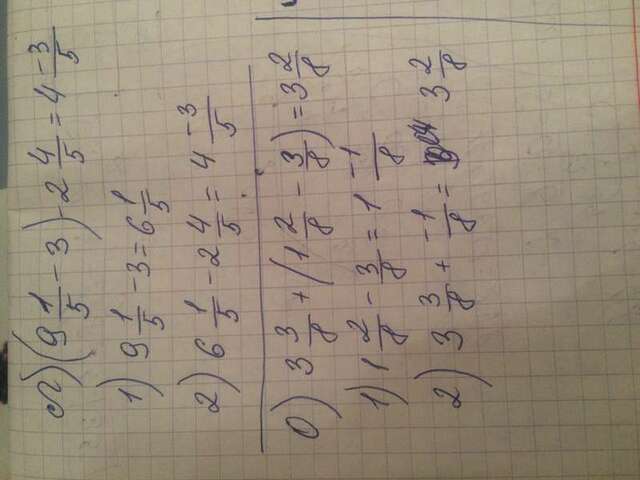 л) (9 1/5 - 3) - 2 4/5 = 4 -3/5
1) 9 1/5 - 3 = 6 1/5
2) 6 1/5 - 2 4/5 = 4 -3/5
О) 3 3/8 + (1 2/8 - 3/8) = 3 2/8
1) 1 2/8 - 3/8 = 1 -1/8
2) 3 3/8 + -1/8 = 3 2/8